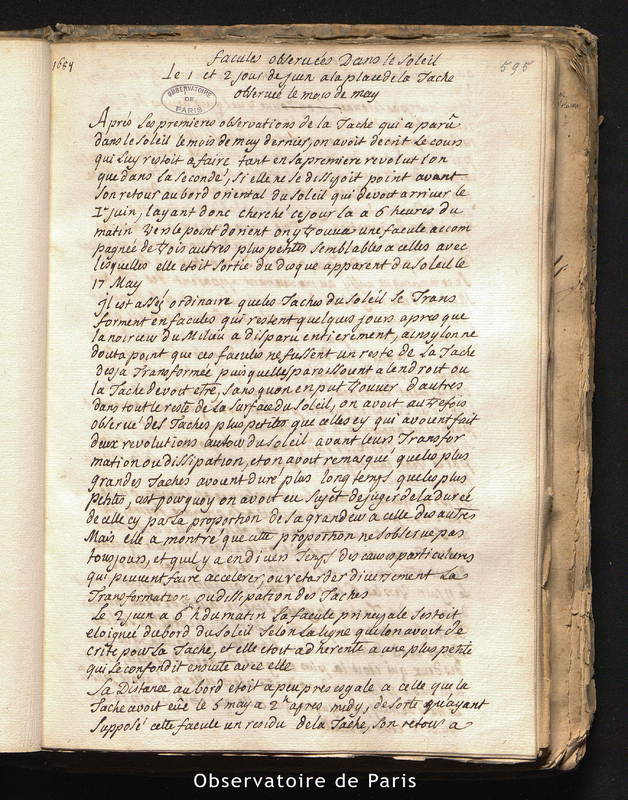 1684
595
facules observées Dans le Soleil
Le 1 et 2 jour de juin a la place de la Tache
observée le mois de may
OBSERVATOIRE
DE
PARIS
Aprés les premieres observations de la Tache qui a parû
dans le soleil le mois de may dernier, on avoit decrit le cours
qui luy restoit a faire tant en sa premiere revolution
que dans la seconde, si elle ne se dissipoit point avant
son retour au bord oriental du soleil qui devoit arriver le
1er juin, layant donc cherché ce jour la a 6 heures du
matin vers le point dorient on y trouva une facule accom
pagnée de trois autres plus petites semblables a celles avec
lesquelles elle etoit sortie du disque apparent du soleil le
17 May
Jl est assés ordinaire que les Taches du soleil se Trans
forment en facules qui restent quelques jours apres que
la noirceur du Milieu a disparu entierement, ainsy lon ne
douta point que ces facules ne fussent un reste de La Tache
desja Transformée puisquelles paroissount a lendroit ou
la Tache devoit etre, sans quon en put trouver dautres
dans tout le reste de la surface du soleil, on avoit autrefois
observé des Taches plus petites que celles cy qui avoient fait
deux revolutions autour du soleil avant leurs Transfor
mation ou dissipation, et on avoit remarqué que les plus
grandes Taches avoient duré plus longtemps que les plus
petites, cest pourquoy on avoit eu sujet de juger de la durée
de celle cy par la proportion de sa grandeur a celle des autres
Mais elle a montré que cette proportion ne sobserve pas
tousjours, et quil y a en divers Temps des causes particulieres
qui peuvent faire accelerer, ou retarder diversement La
Transformation ou dissipation des Taches
Le 2 juin a 6h du matin la facule principale sestoit
eloignée du bord du soleil selon la ligne que lon avoit de
crite pour la Tache, et elle etoit adherente a une plus petite
qui se confondit ensuite avec elle
Sa Distance au bord etoit a peu prés egale a celle que la
Tache avoit eüe le 5 may a 2h apres midy, de sorte quayant
supposé cette facule un residu de la Tache, son retour a
Observatoire de Paris